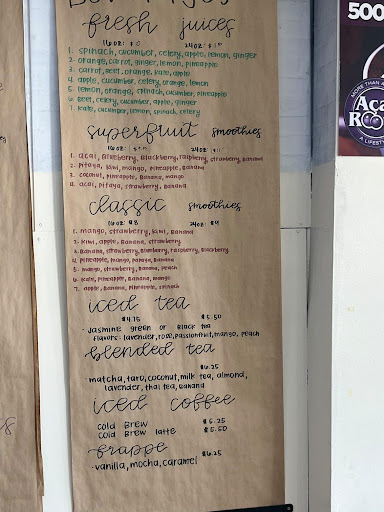 fresh juices
16oz: $ 24oz: $10
1. spinach, cucumber, celery, apple, lemon, ginger
2. orange, carrot, ginger, lemon, pineapple
3. carrot, beet, orange, kale, apple
4. apple, cucumber, celery, orange, lemon
5. lemon, orange, spinach, cucumber, pineapple
6. Beet, celery, cucumber, apple, ginger
7. kale, cucumber, lemon, spinach, celery
superfruit smoothies
16oz: 24oz:
1. acai, blueberry, blackberry, raspberry, strawberry, banana
2. pitaya, kiwi, mango, pineapple, banana
3. coconut, pineapple, banana, mango
4. acai, pitaya, strawberry, banana
classic smoothies
16oz: $8 24oz: $9
1. mango, strawberry, kiwi, banana
2. kiwi, apple, banana, strawberry
3. banana, strawberry, blueberry, raspberry, blackberry
4. pineapple, mango, papaya, banana
5. mango, strawberry, banana, peach
6. kale, pineapple, banana, mango
7. apple, banana, pineapple, spinach
iced tea
$4.75 $5.50
-Jasmine green or black tea
flavors- lavender, rose, passionfruit, mango, peach
blended tea
$6.25
-matcha, taro, coconut, milk tea, almond,
lavender, thai tea, banana
iced coffee
cold brew $5.25
cold brew latte $5.50
frappe $6.25
-vanilla, mocha, caramel
500
MORE THAN A
Aca
Ro
A LIFESTY